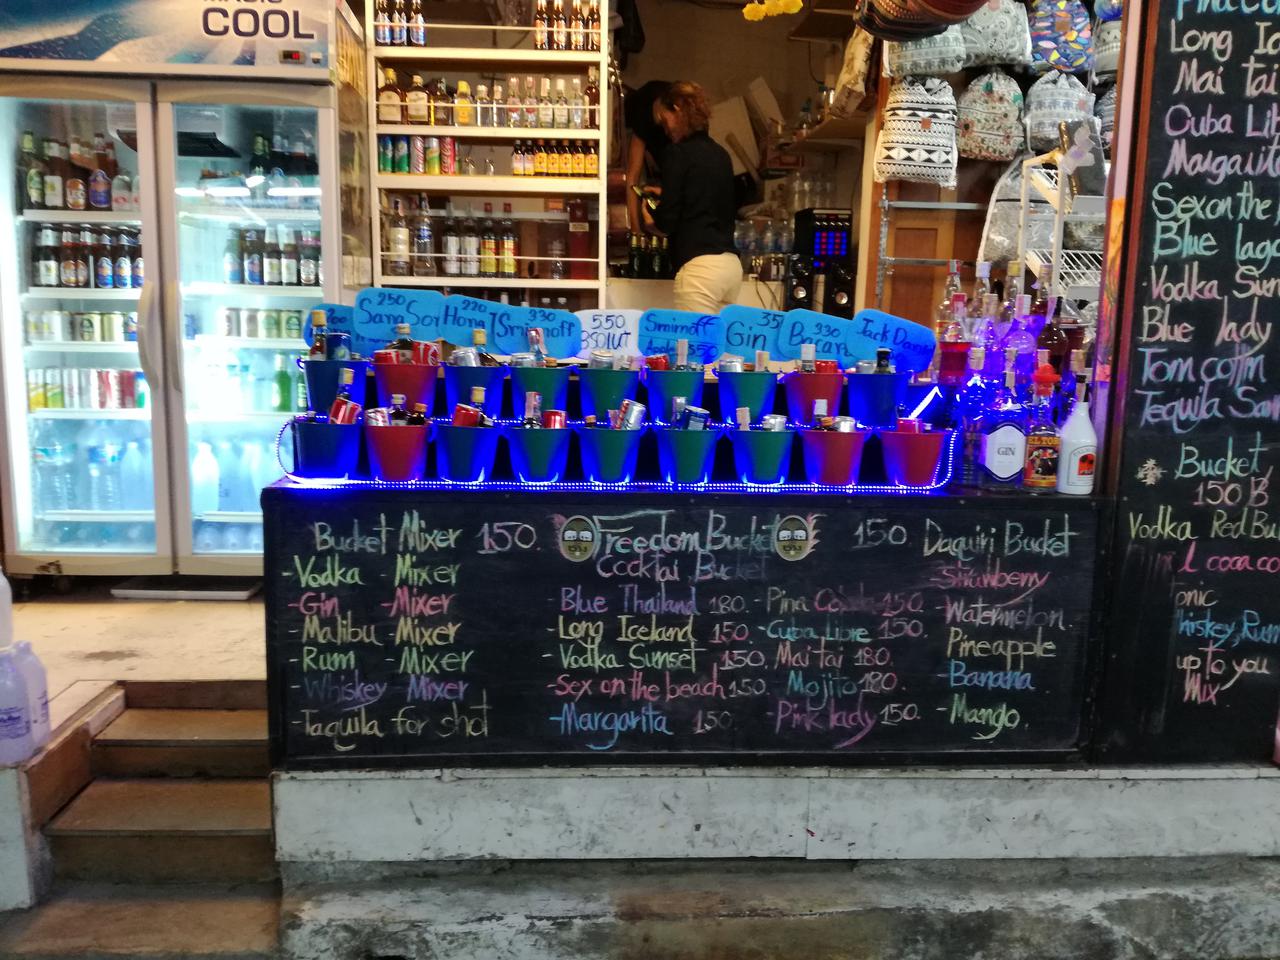 COOL
250
Sang Som
220
Hong
330
Smirnoff
550
Smirnoff
Apple 350
35
Gin
330
Bacar
Jack Dani
GIN
Bucket Mixer 150.
-Vodka - Mixer
-Gin -Mixer
-Malibu -Mixer
-Rum -Mixer
-Whiskey -Mixer
-Taquila for shot
Freedom Bucket 150.
Cocktai Bucket
-Blue Thailand 180.
-Long Iceland 150.
-Vodka Sunset 150.
-Sex on the beach 150.
-Margarita 150
-Pina Colada 150.
-Cuba Libre 150.
-Mai tai 180.
-Mojito 180.
-Pink lady 150.
Daquiri Bucket
-Strawberry
-Watermelon.
Pineapple
-Banana
-Mango.
Long Ic
Mai tai
Cuba Lib
Margarit
Sex on the
Blue lago
Vodka Sun
Blue lady
Tom collin
Tequila Sun
Bucket
150 B
Vodka Red Bu
coca co
tonic
Whiskey, Rum
up to you
Mix